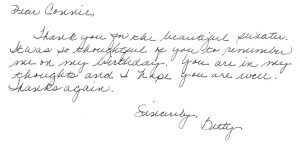 Dear Connie,
Thank you for the beautiful sweater.
It was so thoughtful of you to remember
me on my birthday. You are in my
thoughts and I hope you are well.
Thanks again.
Sincerely,
Betty